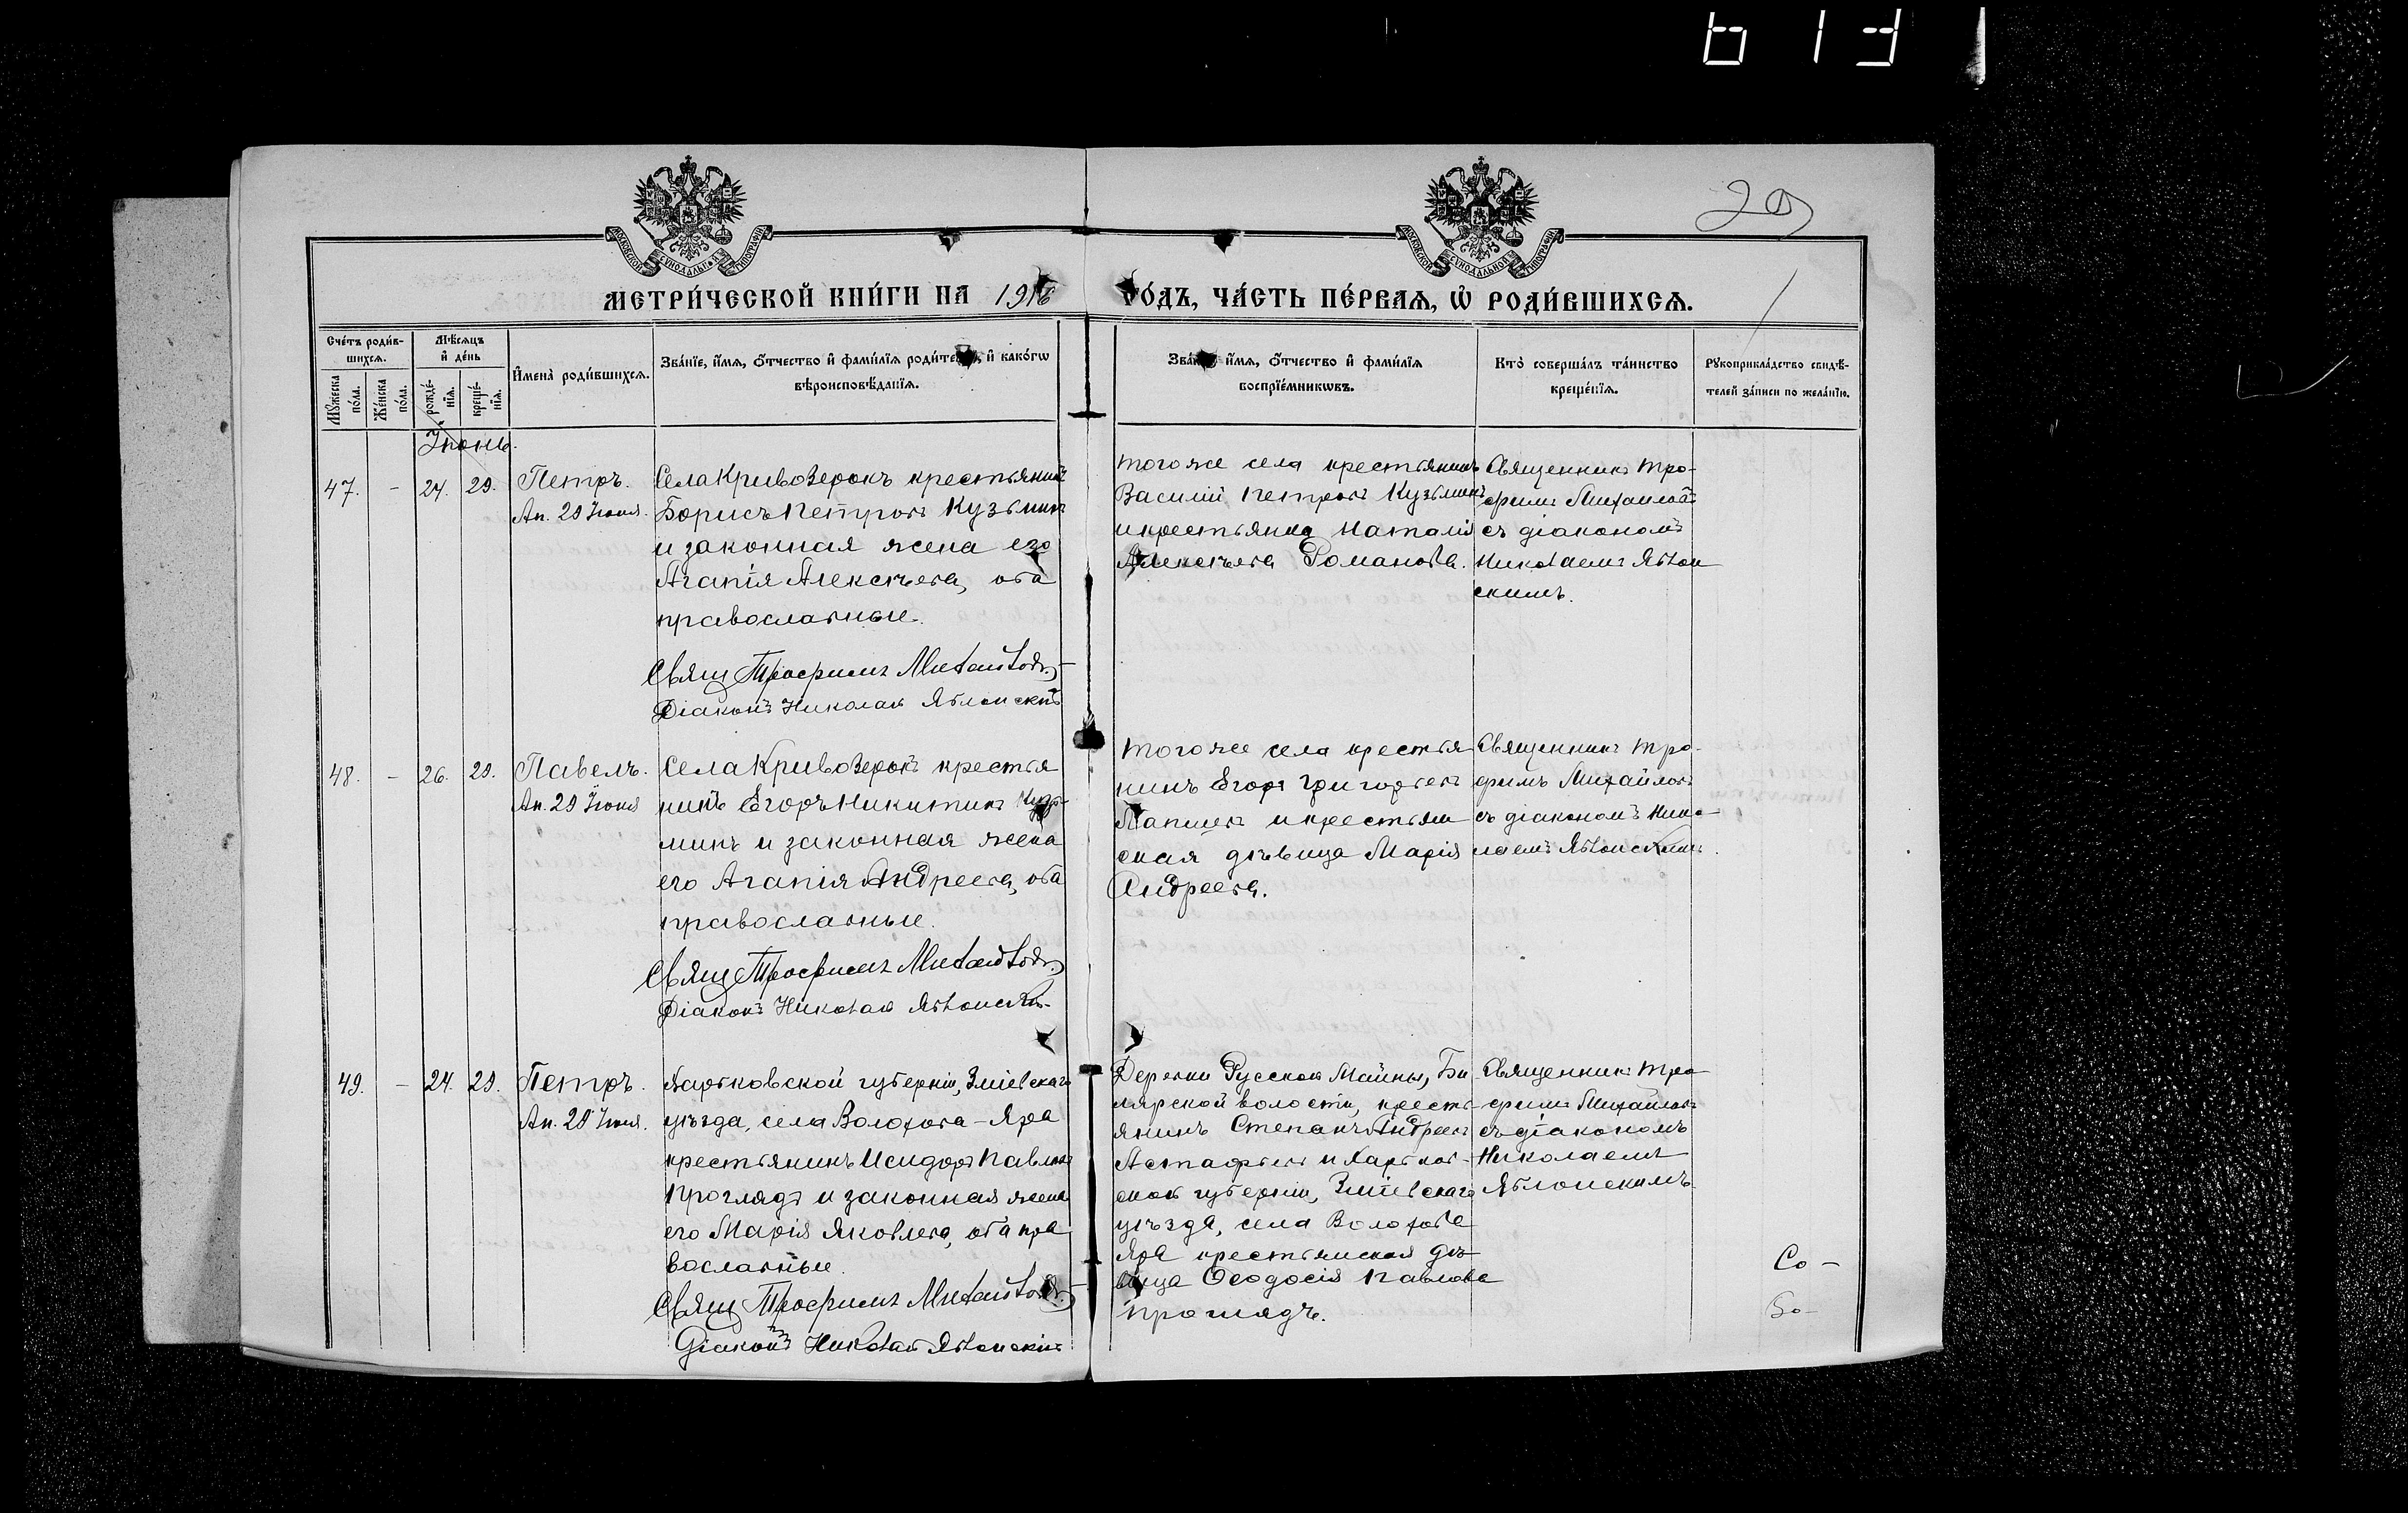 МЕТРИ́ЧЕСКОЙ КНИ́ГИ НА 1916 ГО́ДЪ, ЧА́СТЬ ПЕ́РВАЯ, Ѡ РОДИ́ВШИХСѦ.
Сче́тъ роди́в-
шихсѧ.
Мѣ́сѧцъ
и҆ де́нь
Мꙋ́жеска
по́ла.
Же́нска
по́ла.
рожде́-
нїѧ.
креще́-
нїѧ.
И҆мена̀ роди́вшихсѧ.
Зва́нїе, и҆́мѧ, ѻ҆́тчество и҆ фами́лїѧ роди́телей, и҆ како́гѡ
вѣроисповѣ́данїѧ.
Зва́нїе, и҆́мѧ, ѻ҆́тчество и҆ фами́лїѧ
воспрїе́мникѡвъ.
Кто̀ соверша́лъ та́инство
креще́нїѧ.
Рꙋкоприкла́дство свидѣ́-
телей за́писи по жела́нїю.
Іюнь.
47. - 24. 29.
Петръ.
Ап. 29 Іюня.
Села Кривозерокъ крестьянинъ
Борисъ Петровъ Кузьминъ
и законная жена его
Агапія Алексѣева, оба
православные.
Свящ Трофимъ Михайловъ
Діаконъ Николай Яблонскій
того же села крестьянинъ
Василій Петровъ Кузьминъ
и крестьянка Наталія
Алексѣева Романова.
Священникъ Тро-
фимъ Михайловъ
съ діакономъ
Николаемъ Яблон
скимъ.
48. - 26. 29.
Павелъ.
Ап. 29 Іюня
Села Кривозерокъ крестья
нинъ Егоръ Никитинъ Кузь-
минъ и законная жена
его Агапія Андреева, оба
православные.
Свящ Трофимъ Михайловъ
Діаконъ Николай Яблонскій
того же села крестья
нинъ Егоръ Григорьевъ
Лапшевъ и крестьян
ская дѣвица Марія
Андреева.
Священникъ Тро-
фимъ Михайловъ
съ діакономъ Нико-
лаемъ Яблонскимъ.
49. - 24. 29.
Петръ.
Ап. 29 Іюня.
Харьковской губерніи, Зміевскаго
уѣзда, села Волохова-Яра
крестьянинъ Исидоръ Павловъ
Проглядъ и законная жена
его Марія Яковлева, оба пра
вославные.
Свящ Трофимъ Михайловъ
Діаконъ Николай Яблонскій
Деревни Русской Майны, Би
лярской волости, кресть-
янинъ Степанъ Андреевъ
Астафьевъ и Харьков-
ской губерніи, Зміевскаго
уѣзда, села Волохова
Яра крестьянская дѣ
вица Ѳеодосія Павлова
Проглядъ.
Священникъ Тро
фимъ Михайловъ
съ діакономъ
Николаемъ
Яблонскимъ
Со-